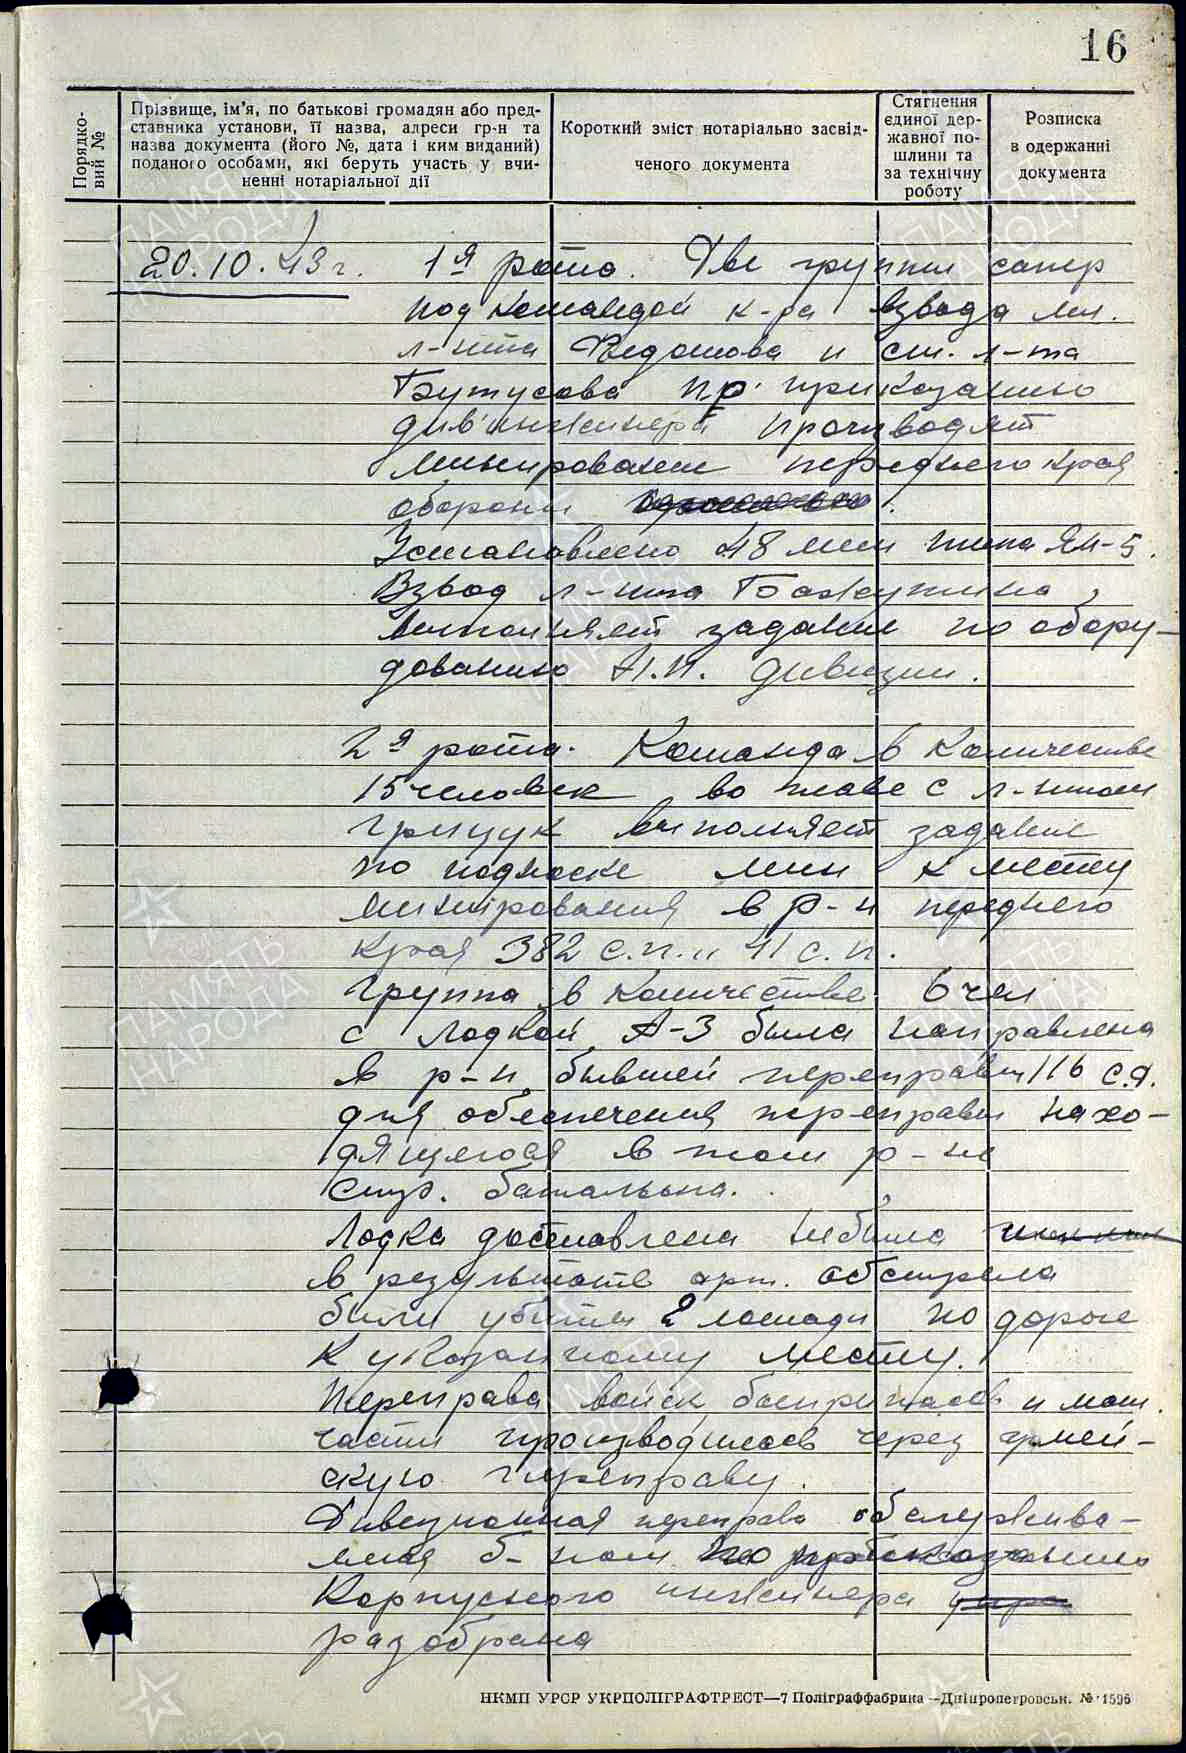 16
Порядко-
вий №
Прізвище, ім'я, по батькові громадян або пред-
ставника установи, її назва, адреси гр-н та
назва документа (його №, дата і ким виданий)
поданого особами, які беруть участь у вчи-
ненні нотаріальної дії
Короткий зміст нотаріально засвід-
ченого документа
Стягнення
єдиної дер-
жавної по-
шлини та
за технічну
роботу
Розписка
в одержанні
документа
20.10.43 г. 1я рота. Две группы сапер
под командой к-ра взвода мл.
л-нта Федотова и ст. л-та
Бутусова пр. приказанию
дивинженера производят
минирование переднего края
обороны
Установлено 48 мин типа ЯМ-5.
Взвод л-нта Бажутина
выполняет задание по обору-
дованию Н.П. дивизии.
2я рота. Команда в количестве
15 человек во главе с л-нтом
Грицук выполняет задание
по подноске мин к месту
минирования в р-н переднего
края 382 с.п. и 41 с.п.
Группа в количестве 6 чел
с лодкой А-3 была направлена
в р-н бывшей переправы 116 с.д.
для обеспечения переправы нахо-
дящегося в том р-не
стр. батальона.
Лодка доставлена не была
в результате арт. обстрела
были убиты 2 лошади по дороге
к указанному месту.
Переправа войск боеприпасов и мат.
части производилась через армей-
скую переправу.
Дивизионная переправа обслужива-
емая б-ном по приказанию
Корпусного инженера
разобрана
НКМП УРСР УКРПОЛІГРАФТРЕСТ—7 Поліграффабрика—Дніпропетровськ. № 1596
ПАМЯТЬ
НАРОДА